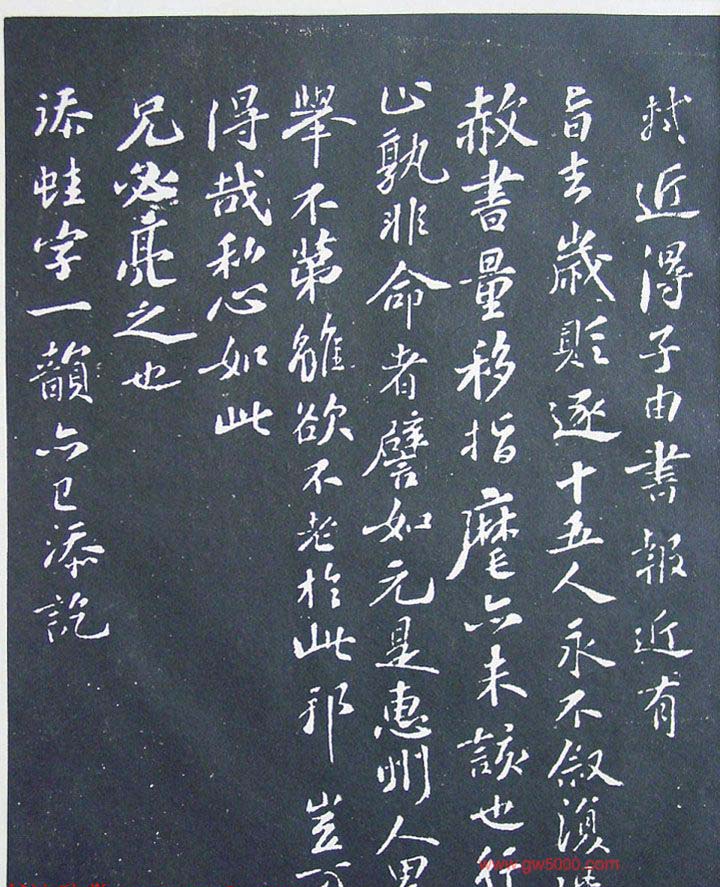 軾近得子由書報近有
旨去歲貶逐十五人永不敘復
赦書量移指麾亦未該也行
止孰非命者譬如元是惠州人累
舉不第雖欲不老於此邪豈可
得哉私心如此
兄必亮之也
添蛙字一韻亦已添訖
www.gw5000.com